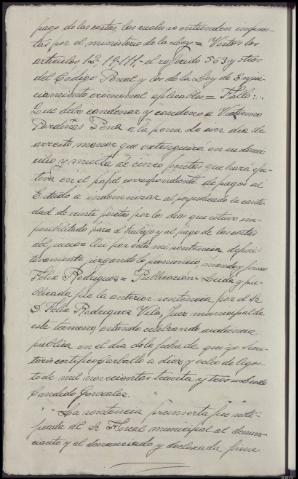 pago de las costas, las cuales se entienden impues-
tas por el ministerio de la Ley = Vistos los
artículos 1º 19 114 el referido 563 y otros
del Código Penal y los de la Ley de Enjui-
ciamiento criminal aplicables = Fallo:
Que debo condenar y condeno a
Perdices Pena a la pena de un día de
arresto menor que extinguirá en su domi-
cilio y multa de cinco pesetas que hará efec-
tiva en el papel correspondiente de pagos al
Estado a indemnizar al perjudicado la canti-
dad de veinte pesetas por los días que estuvo im-
posibilitado para el trabajo y al pago de las costas
del juicio Así por esta mi sentencia defini-
tivamente juzgando lo pronuncio mando y firmo
Félix Rodríguez = Publicación = Leída y pu-
blicada fue la anterior sentencia por el Sr.
D. Félix Rodríguez Vila, Juez municipal de
este término, estando celebrando audiencia
pública en el día de la fecha de que yo Secre-
tario certifico Carballo a diez y ocho de Agos-
to de mil novecientos treinta y tres
Candido Gonzalez
La sentencia transcrita fue noti-
ficada al Sr. Fiscal municipal al denun-
ciante y al denunciado y declarada firme